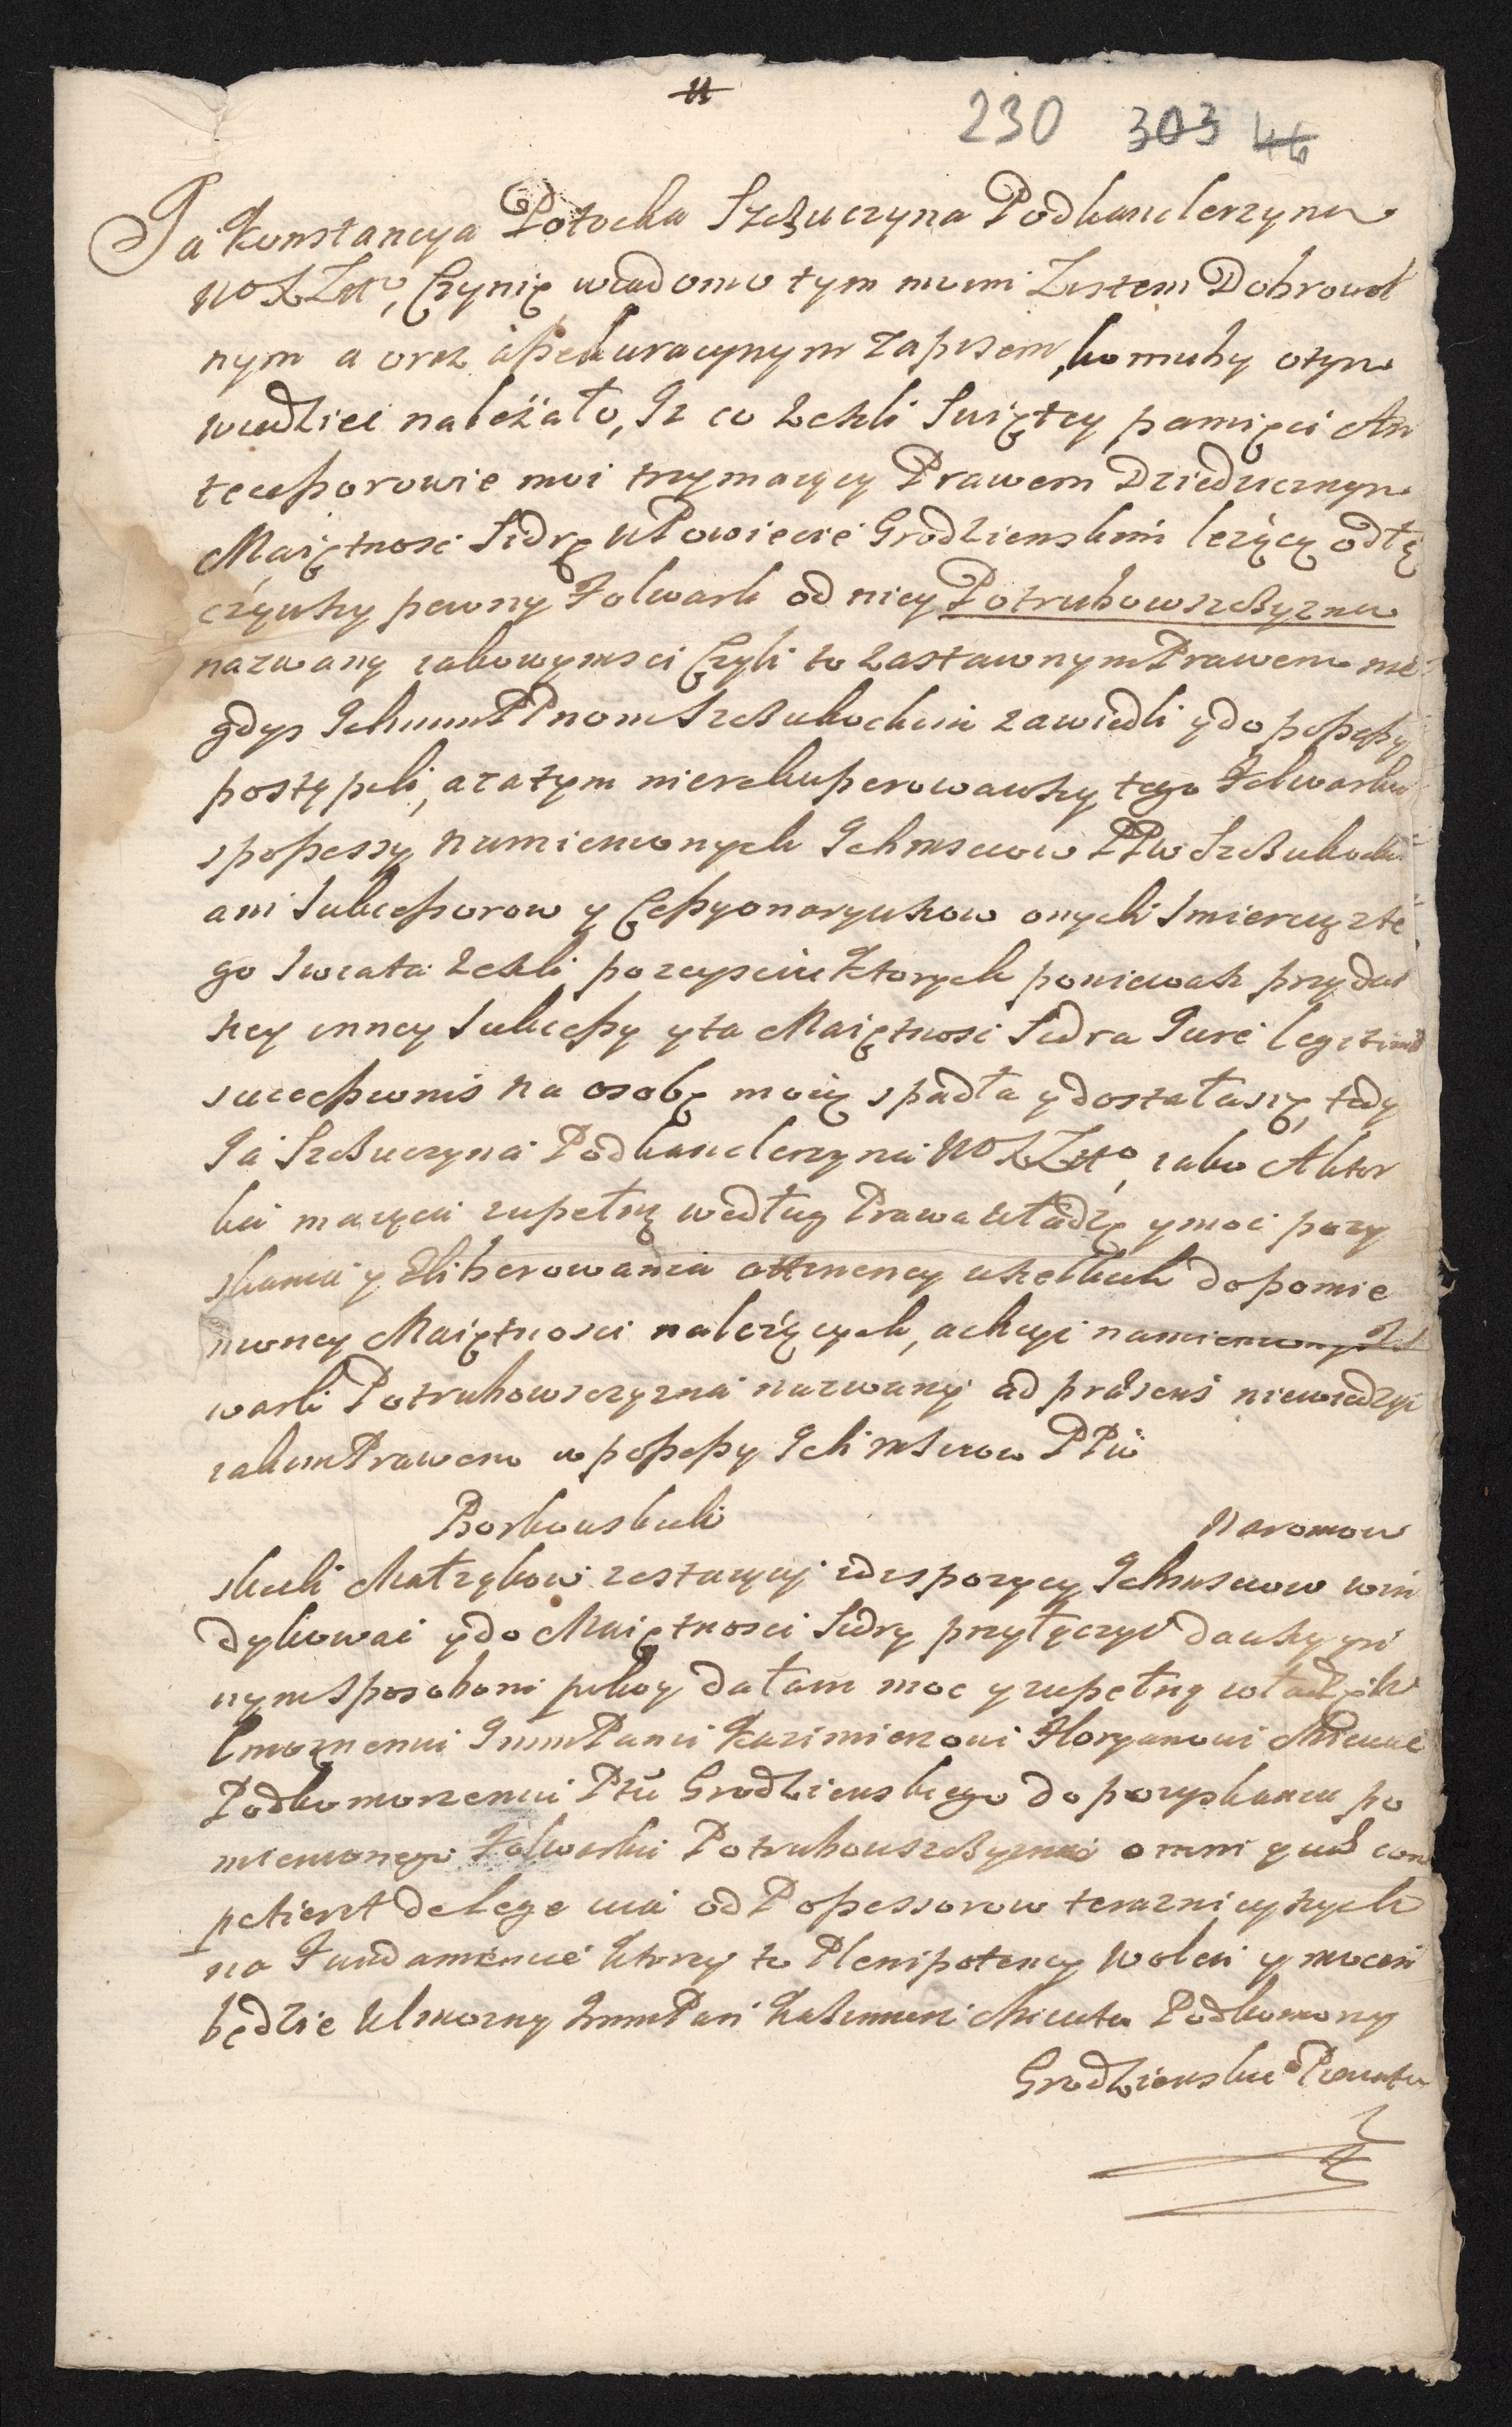 11
230 303 46
Ja Konstancya Potocka Szczuczyna Podkanclerzyna
WoXLitto, Czynię wiadomo tym moim Listem Dobrowol
nym a oraz assekuracyinym zapisem, komuby otym
wiedziec należało, Iz co zeszli swiętey pamięci An
tecessorowie moi trzymaiący Prawem Dziedzicznym
Maiętnosc Sidrę w Powiecie Grodzienskim leżącą odłą
czywszy pewny Folwark od niey Potrubowszczyzna
nazwany iakowymsci Czyli to zastawnym Prawem nie
gdys Ichmm PPnom Szczukockim zawiedli y do possessy
postąpili, a zatym nierekuperowawszy tego Folwarku
z possessy namienionych Ichmsciow PPw Szczukockich
ani Sukcessorow y Cessyonaryuszow onych smiercią z te
go swiata zeszli po zeysciu ktorych poniewasz przy dal
szey inney sukcessy y ta Maiętnosc Sidra Jure legitimo
successionis na osobę moię spadła y dostała się, tedy
Ja Szczuczyna Podkanclerzyna WoXLitto, iako Aktor
ka maiąca zupełną według Prawa władzę y moc pozy
skania y eliberowania attinency wszelkich do pomie
nioney Maiętnosci należących, a chcąc namieniony Fol
wark Potrubowszczyzna nazwany ad præsens niewiedzyc
iakim Prawem w possessy Ichmsciow PPw
Borkowskich Naromow
skich Małżąkow zostaiący i dispozycy Ichmsciow win
dykowac y do Maiętnosci Sidry przyłączyc dawszy in
nym sposobom pokoy dałam moc y zupełną władzę W
Imoznemu Jmm Panu Kazimierzowi Floryanowi Micucie
Podkomorzemu Pttu Grodzienskiego do pozyskania po
mienionego Folwarku Potrubowszczyzna omni qua com
petierit de lege via od Possessorow teraznieyszych
na Fundamencie ktorey to Plenipotency wolen y mocen
będzie Wlmozny Jmm Pan Kazimierz Micuta Podkomorzy
Grodzienskieo Powiatu